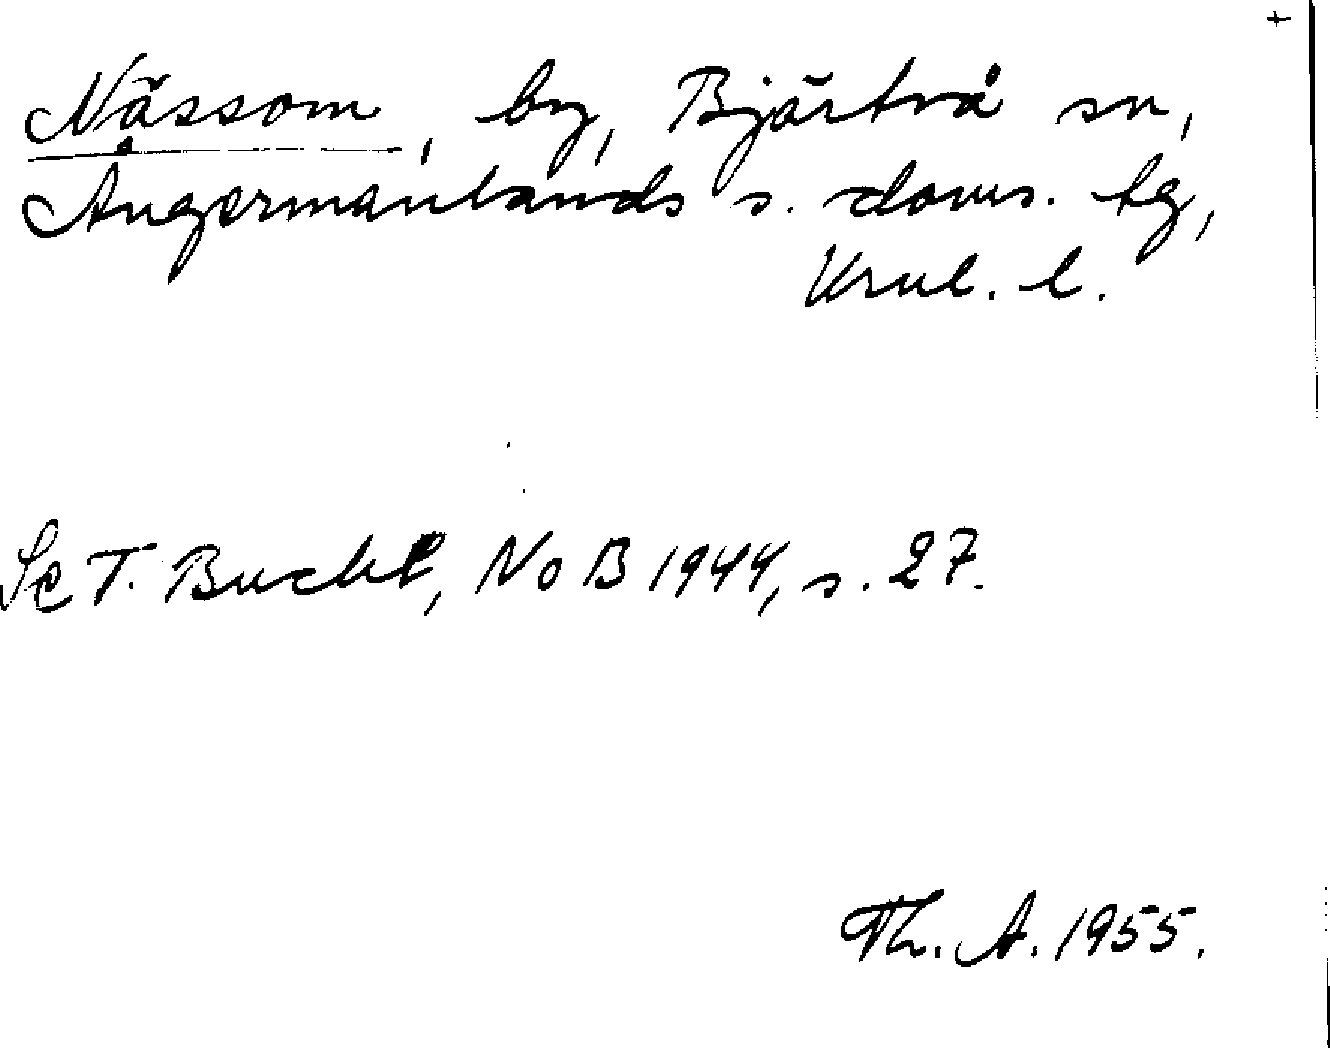 +
Nässom, by, Bjärtrå sn,
Ångermanlands s. doms. tg,
Vrnl. l.
Se T. Bucht, NoB 1944, s. 27.
Th. A. 1955.